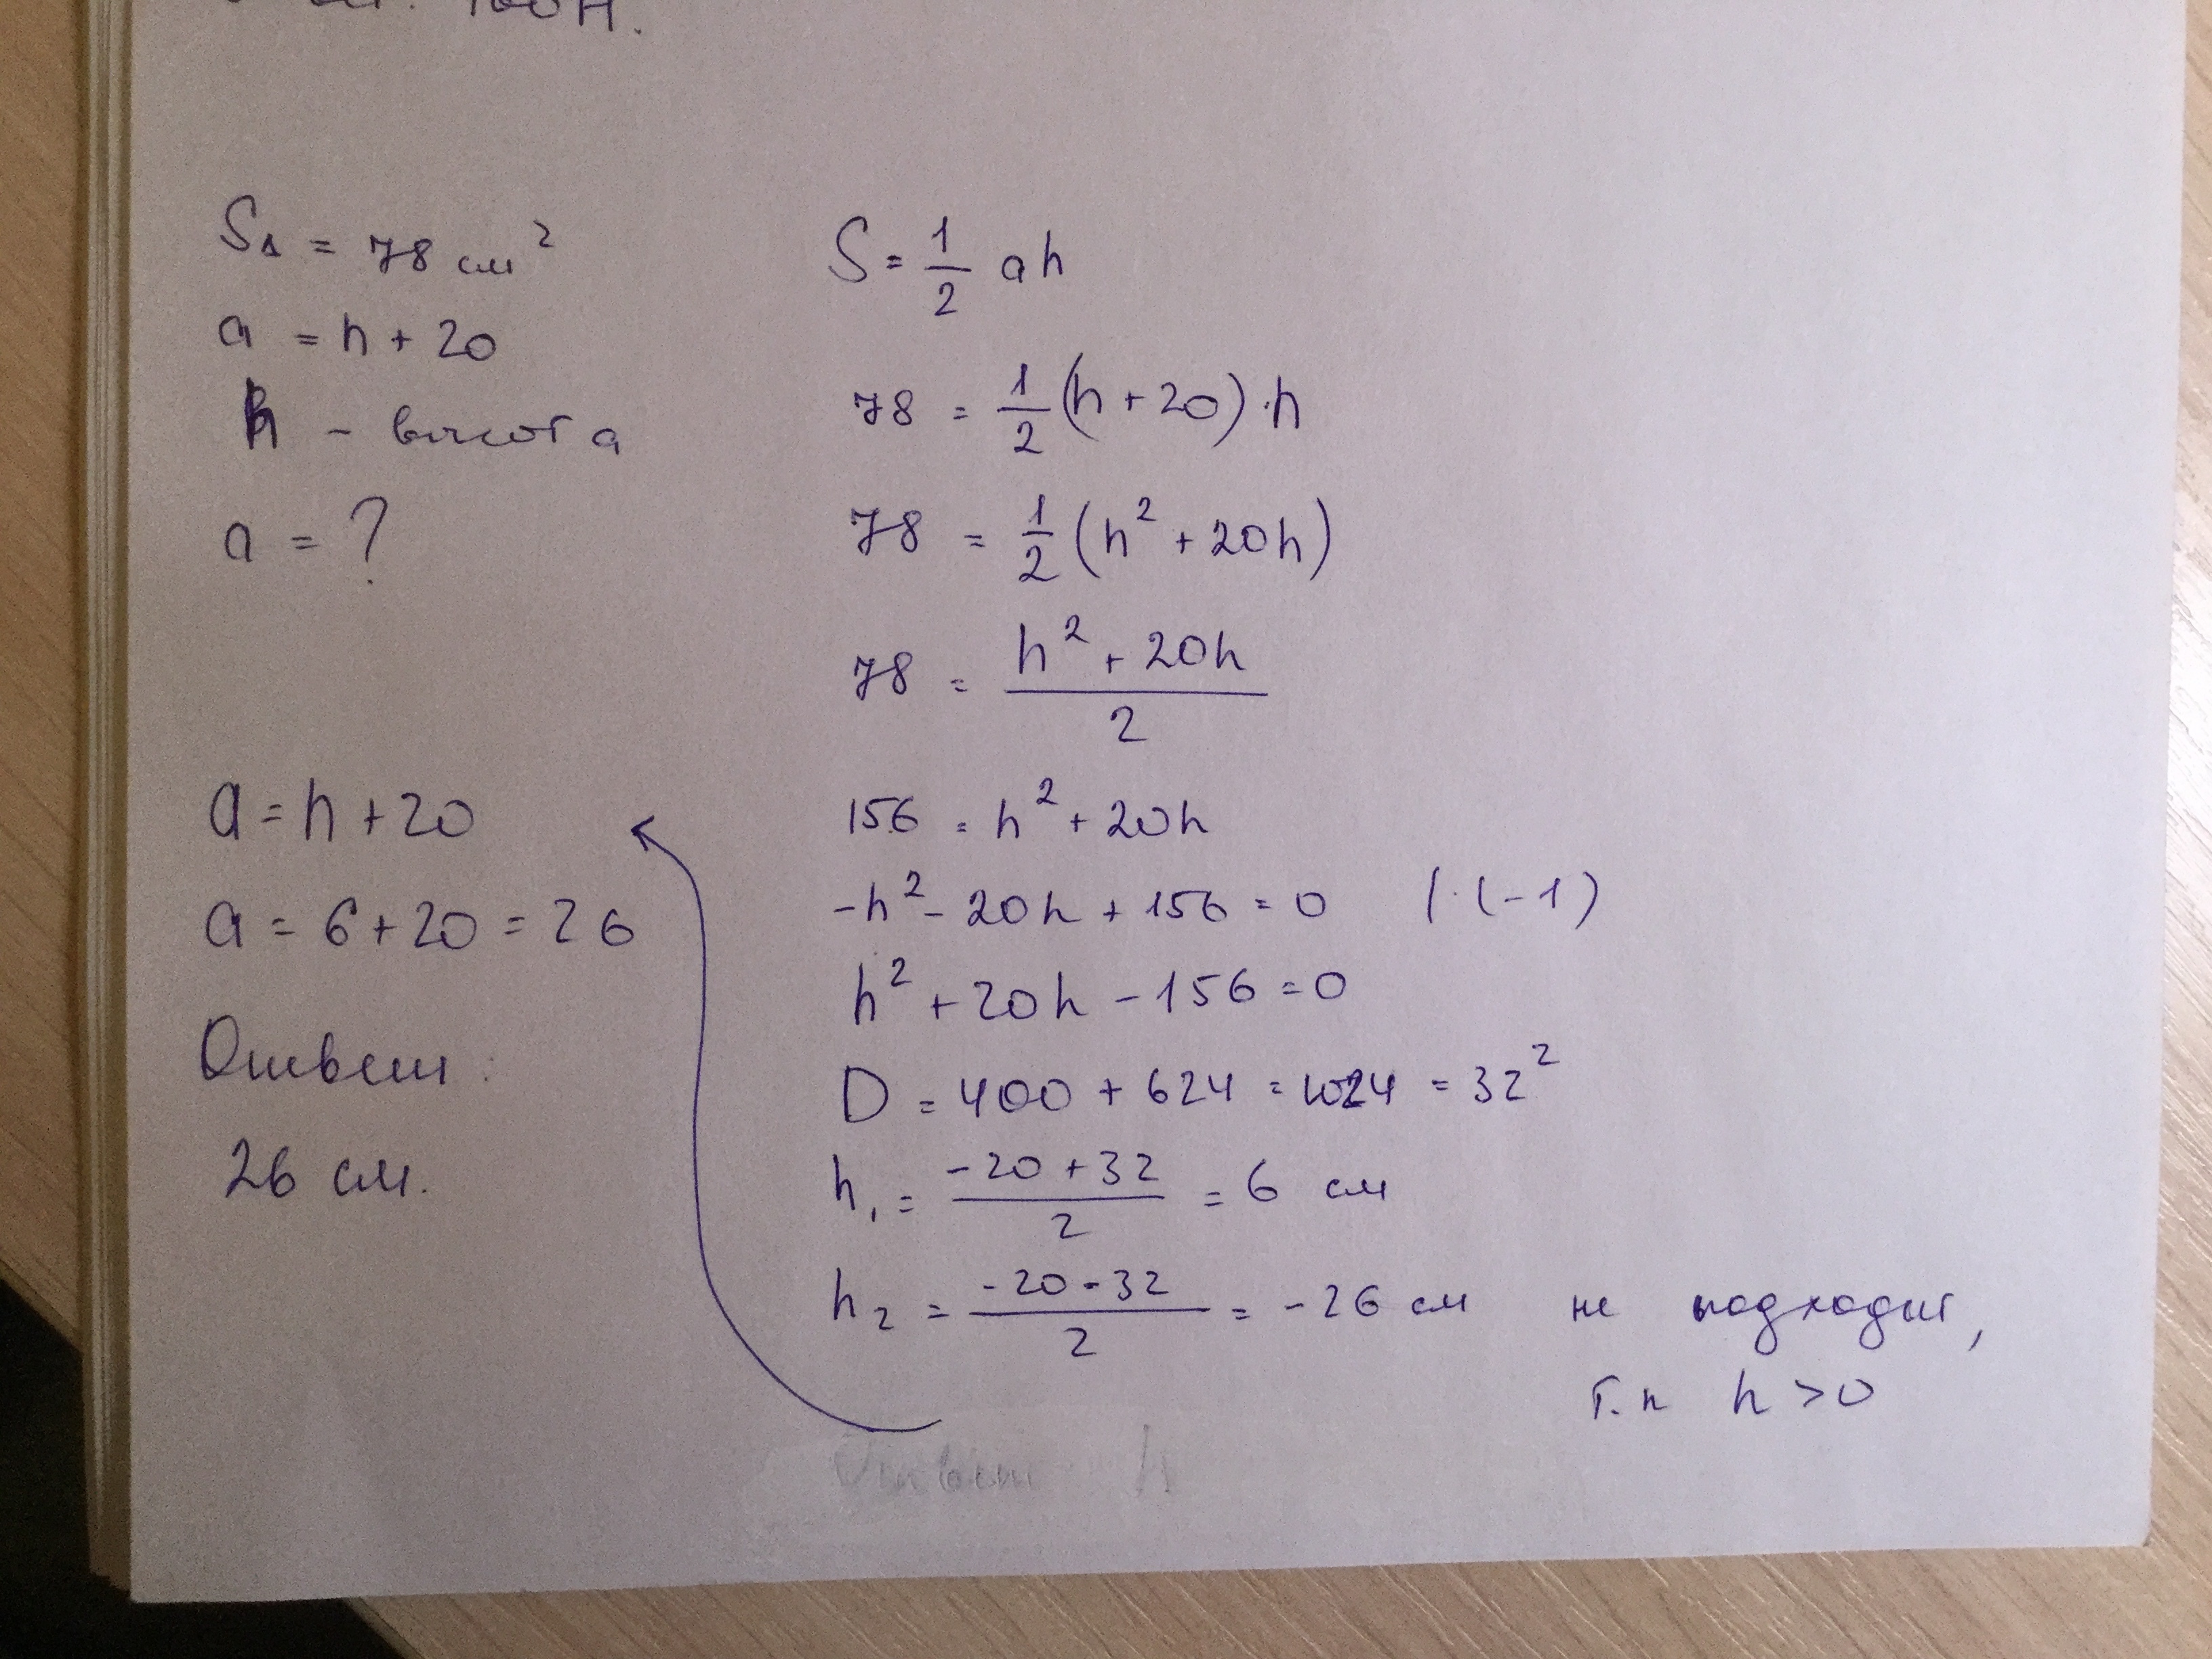 S△ = 78 см²
a = h + 20
h - высота
a = ?
S = 1/2 ah
78 = 1/2 (h + 20) · h
78 = 1/2 (h² + 20h)
78 = (h² + 20h)/2
156 = h² + 20h
-h² - 20h + 156 = 0 | · (-1)
h² + 20h - 156 = 0
D = 400 + 624 = 1024 = 32²
h₁ = (-20 + 32)/2 = 6 см
h₂ = (-20 - 32)/2 = -26 см не подходит,
т.к h > 0
a = h + 20
a = 6 + 20 = 26
Ответ:
26 см.
Ответ h